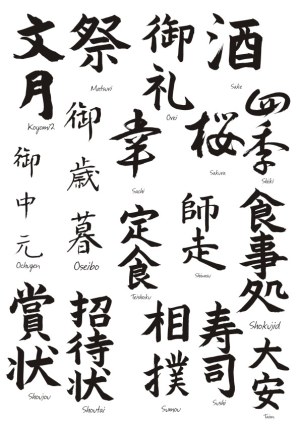 文月
Koyomi2
祭
Matsuri
御礼
Orei
酒
Sake
御中元
Ochugen
御歳暮
Oseibo
幸
Sachi
桜
Sakura
四季
Shiki
定食
Teishoku
師走
Shiwasu
食事処
Shokujid
賞状
Shoujou
招待状
Shoutai
相撲
Sumou
寿司
Sushi
大安
Taian